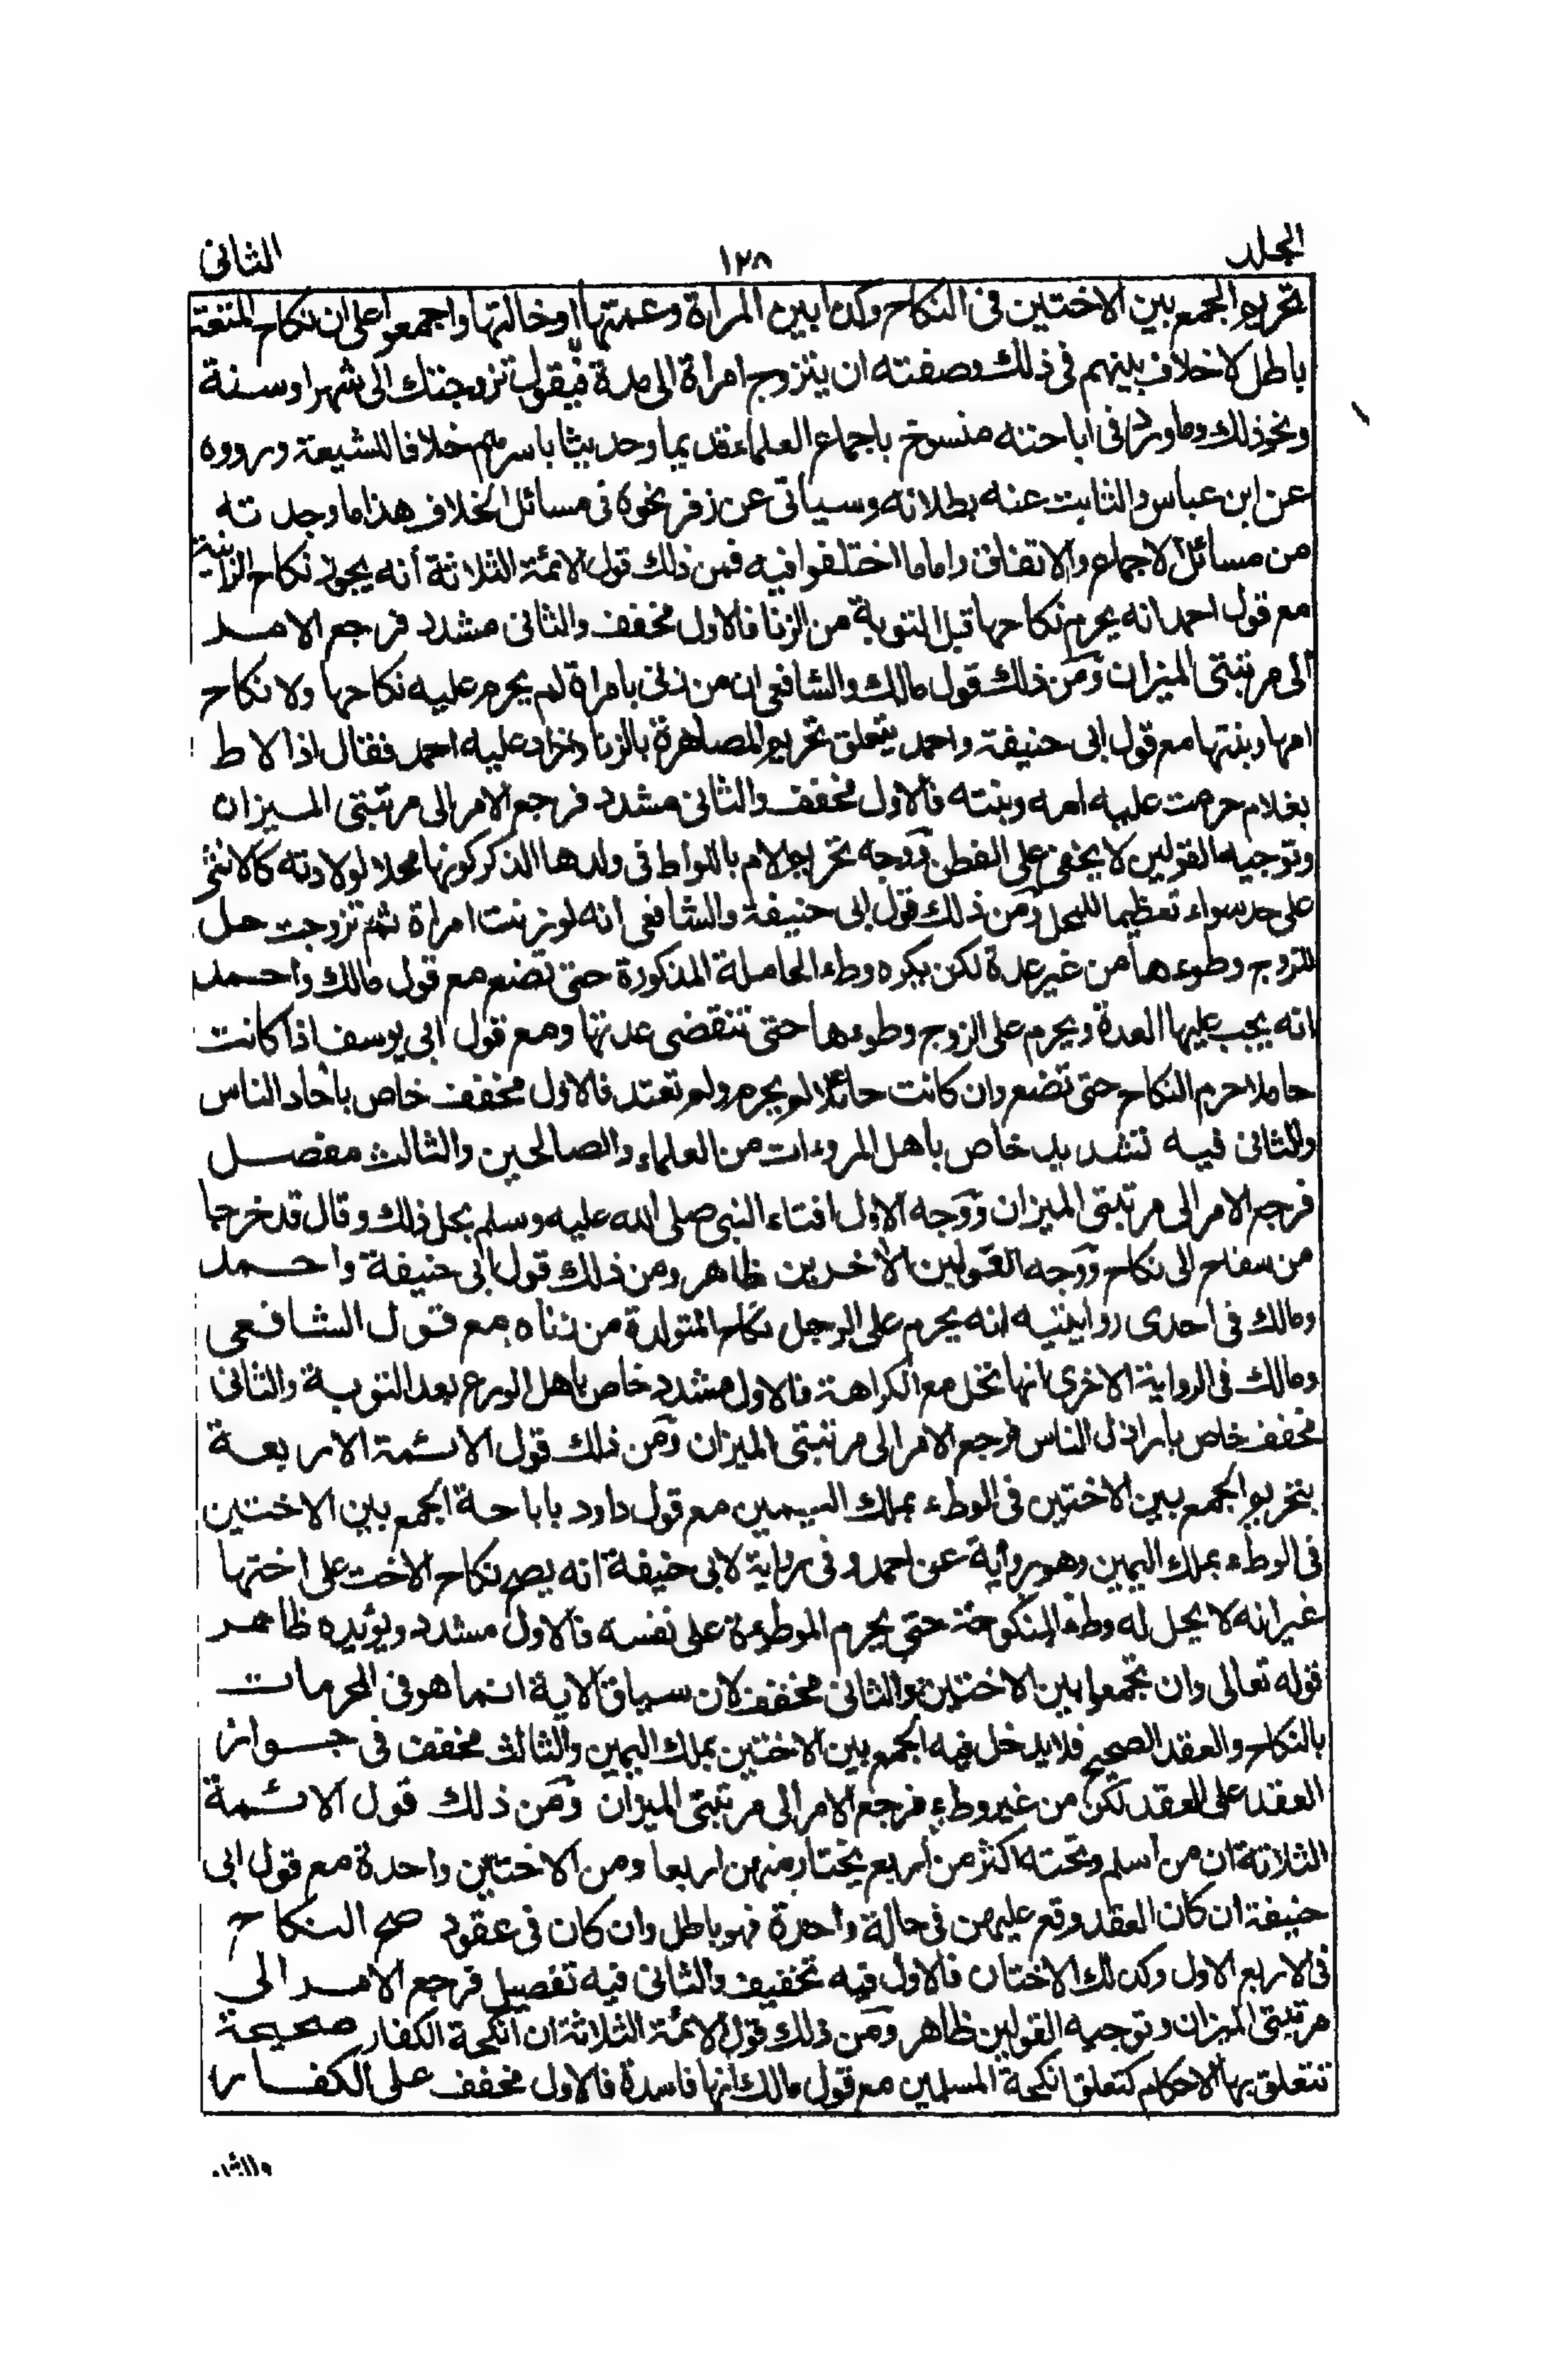 المجلد ١٢٨ الثانى
تحريم الجمع بين الاختين فى النكاح وكذا بين المراة وعمتها او خالتها واجمعوا على ان نكاح المتعة
باطل لا خلاف بينهم فى ذلك وصفته ان يتزوج امراة الى مدة فيقول تزوجتك الى شهر او سنة
ونحو ذلك وما ورد فى اباحته منسوخ باجماع العلماء قديما وحديثا باسرهم خلافا للشيعة ورووه
عن ابن عباس والثابت عنه بطلانه وسياتى عن زفر نحوه فى مسائل الخلاف هذا ما وجدته
من مسائل الاجماع والاتفاق واما ما اختلفوا فيه فمن ذلك قول الائمة الثلاثة أنه يجوز نكاح الزانية
مع قول احمد انه يحرم نكاحها قبل التوبة من الزنا فالاول مخفف والثانى مشدد فرجع الامر
الى مرتبتى الميزان ومن ذلك قول مالك والشافعى ان من زنى بامراة لم يحرم عليه نكاحها ولا نكاح
امها وبنتها مع قول ابى حنيفة واحمد يتعلق تحريم المصاهرة بالزنا وزاد عليه احمد فقال اذا لاط
بغلام حرمت عليه امه وبنته فالاول مخفف والثانى مشدد فرجع الامر الى مرتبتى الميزان
وتوجيه القولين لا يخفى على الفطن ووجه تحريم الام باللواط فى ولدها الذكر كونها محلا لولادته كالانثى
على حد سواء تعظيما للمحل ومن ذلك قول ابى حنيفة والشافعى انه لو زنت امراة ثم تزوجت حل
للزوج وطوءها من غير عدة لكن يكره وطء الحاملة المذكورة حتى تضع مع قول مالك واحمد
انه يجب عليها العدة ويحرم على الزوج وطوءها حتى تنقضى عدتها ومع قول ابى يوسف اذا كانت
حاملا حرم النكاح حتى تضع وان كانت حائلا لم يحرم ولم تعتد فالاول مخفف خاص بآحاد الناس
والثانى فيه تشديد خاص باهل المروءات من العلماء والصالحين والثالث مفصل
فرجع الامر الى مرتبتى الميزان ووجه الاول افتاء النبى صلى الله عليه وسلم بحل ذلك وقال قد خرجا
من سفاح الى نكاح ووجه القولين الاخرين ظاهر ومن ذلك قول ابى حنيفة واحمد
ومالك فى احدى روايتيه انه يحرم على الرجل نكاح المتولدة من زناه مع قول الشافعى
ومالك فى الرواية الاخرى انها تحل مع الكراهة فالاول مشدد خاص باهل الورع بعد التوبة والثانى
مخفف خاص باراذل الناس فرجع الامر الى مرتبتى الميزان ومن ذلك قول الائمة الاربعة
بتحريم الجمع بين الاختين فى الوطء بملك اليمين مع قول داود باباحة الجمع بين الاختين
فى الوطء بملك اليمين وهو رواية عن احمد وفى رواية لابى حنيفة انه يصح نكاح الاخت على اختها
غير انه لا يحل له وطء المنكوحة حتى يحرم الموطوءة على نفسه فالاول مشدد ويؤيده ظاهر
قوله تعالى وان تجمعوا بين الاختين والثانى مخفف لان سياق الاية انما هو فى المحرمات
بالنكاح والعقد الصحيح فلا يدخل فيه الجمع بين الاختين بملك اليمين والثالث مخفف فى جواز
العقد على العقد لكن من غير وطء فرجع الامر الى مرتبتى الميزان ومن ذلك قول الائمة
الثلاثة ان من اسلم وتحته اكثر من اربع يختار منهن اربعا ومن الاختين واحدة مع قول ابى
حنيفة ان كان العقد وقع عليهن فى حالة واحدة فهو باطل وان كان فى عقود صح النكاح
فى الاربع الاول وكذلك الاختان فالاول فيه تخفيف والثانى فيه تفصيل فرجع الامر الى
مرتبتى الميزان وتوجيه القولين ظاهر ومن ذلك قول الائمة الثلاثة ان انكحة الكفار صحيحة
تتعلق بها الاحكام كتعلق انكحة المسلمين مع قول مالك انها فاسدة فالاول مخفف على الكفار